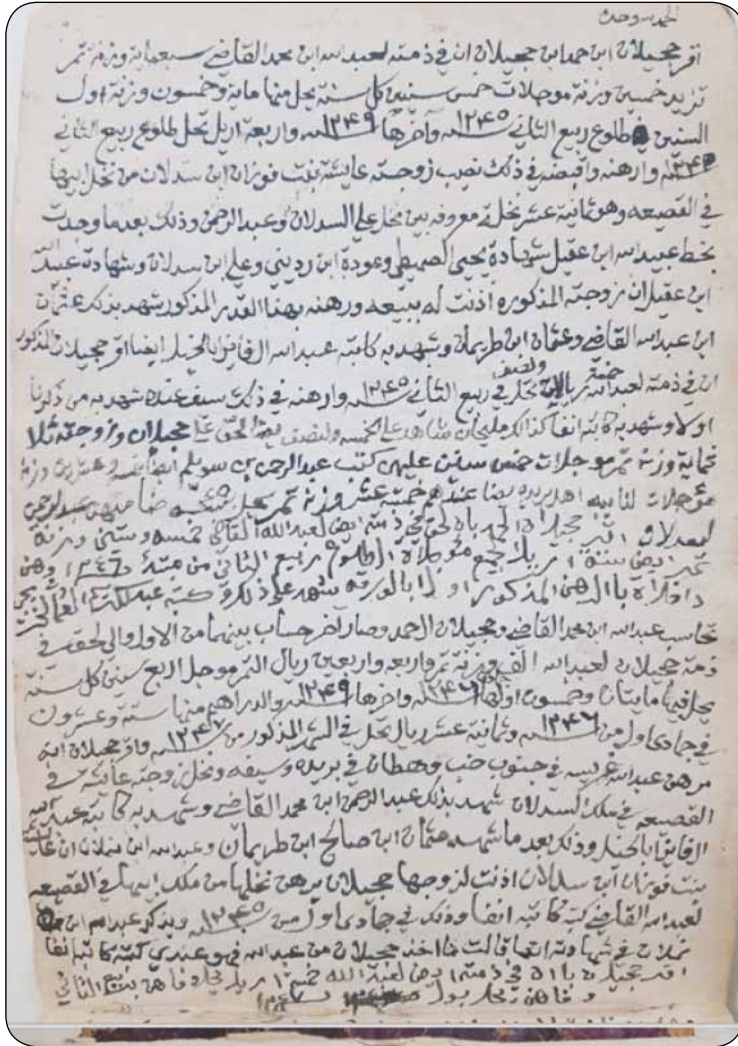 الحمد لله وحده
اقر حجيلان ابن حمد ابن حجيلان ان في ذمته لعبد الله ابن محمد القاضي سبعماية وزنة تمر
تزيد خمسين وزنة موجلات خمس سنين كل سنة يحل منها ماية وخمسون وزنة اول
السنين طلوع ربيع الثاني ١٢٤٥ سنة وآخرها ١٢٤٩ سنة واربعة اريل تحل طلوع ربيع الثاني
سنة وارهنه واقبضه في ذلك نصيب زوجته عايشة بنت فوزان ابن سدلان من نخل ابيها
في القصيعه وهو ثمانية عشر نخلة معروفه بين نخل علي السدلان وعبد الرحمن وذلك بعد ما وجدت
بخط عبيد الله ابن عقيل شهادة يحيى الصميطي وعودة ابن رديني وعلي ابن سدلان وشهادة عبيد الله
ابن عقيل ان زوجته المذكوره أذنت له ببيعه ورهنه بهذا القدر المذكور شهد بذلك عثمان
ابن عبد الله القاضي وعثمان ابن طريمان وشهد به كاتبه عبد الله الفايز ابا الخيل ايضا اقر حجيلان المذكور
ان في ذمته لعبد الله خمسة ريال ونصف تحل في ربيع الثاني ١٢٤٥ سنة وارهنه في ذلك سيف عنده شهد به من ذكرنا
اولا وشهد به كاتبه انفا كذلك شاهد على الخمسه والنصف حجيلان وزوجته ثلا
ثماية وزنة تمر موجلات خمس سنين كتب عبد الرحمن بن سويلم ايضا خمسة وعشرين وزنة
مؤجلات خمسة عشر وزنة تمر يحل عبد الرحمن
السدلان اقر حجيلان الحمد بان في ذمته ايضا لعبد الله القاضي خمسه وستين وزنة
تمر ايضا ستة اريل الجميع مؤجلات الى طلوع ربيع الثاني من سنة ١٢٤٦
داخلات بالرهن المذكور اولا بالورقه شهد على ذلك وكتبه عبد الله
تحاسب عبد الله ابن محمد القاضي وحجيلان الحمد وصار آخر حساب بينهما من الاول والى لحق في
ذمة حجيلان لعبد الله الف وزنة تمر واربعه واربعين ريال التمر موجل اربع سنين كل سنة
يحل فيها مايتان وخمسون اولها ١٢٤٦ سنة واخرها ١٢٤٩ سنة والدراهم منها ستة وعشرون
في جمادى اول من ١٢٤٦ سنة وثمانية عشر ريال تحل في الشهر المذكور من سنة واقر حجيلان انه
مرهن عبد الله غريسه في جنوب خب وهطان في بريده وسيفه ونخل زوجته عايشه في
القصيعه في ملك السدلان شهد بذلك عبد الرحمن ابن محمد القاضي وشهد به كاتبه عبد الله
الفايز ابا الخيل وذلك بعد ما شهد عثمان ابن صالح ابن طريمان وعبد الله ابن ان عايشه
بنت فوزان ابن سدلان اذنت لزوجها حجيلان يرهن نخلها من ملك ابيها في القصيعه
لعبد الله القاضي كتبه كاتبه انفا وذلك في جمادى اول من ١٢٤٥ سنة ويذكر عبد الله ابن
في شهادته انها قالت ما اخذ حجيلان من عبد الله فهو عندي كتبه كاتبه انفا
اقر حجيلان بان في ذمته ايضا لعبد الله خمسة ريال ربيع الثاني